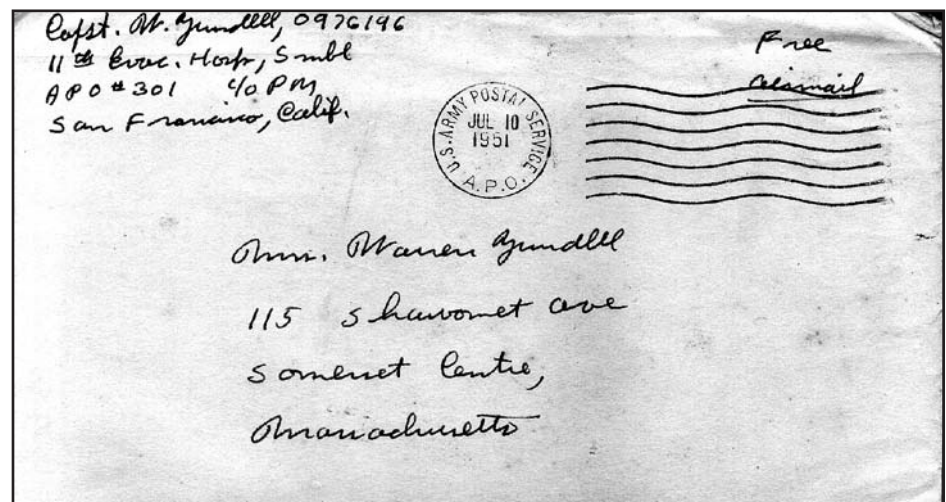 Capt. W. Gundell, 0976196
11th Evac. Hosp, Smbl
APO #301 c/o PM
San Francisco, Calif.
Free
Airmail
U.S. ARMY POSTAL SERVICE
JUL 10
1951
A.P.O.
Mrs. Warren Gundell
115 Shawomet Ave
Somerset Centre,
Massachusetts